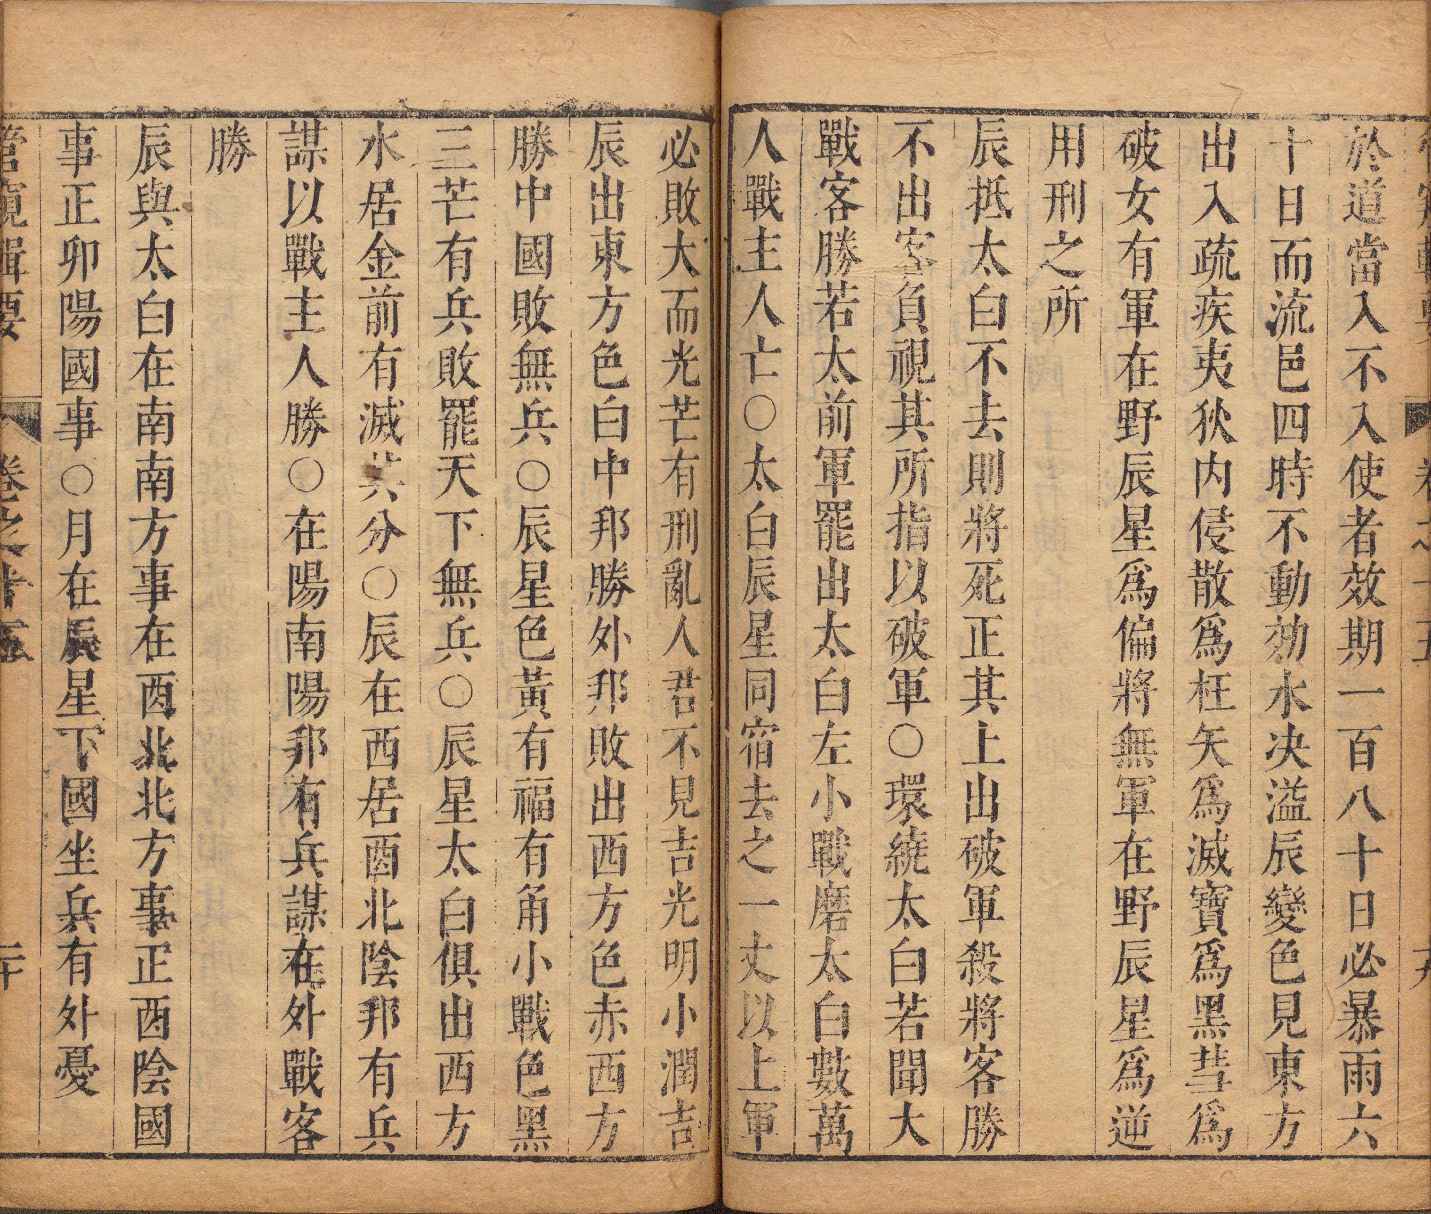 於道當入不入使者效期一百八十日必暴雨六
十日而流邑四時不動効水决溢辰變色見東方
出入疏疾夷狄内侵散爲枉矢爲滅寶爲黑彗爲
破女有軍在野辰星爲偏將無軍在野辰星爲逆
用刑之所
辰抵太白不去則將死正其上出破軍殺將客勝
不出客負視其所指以破軍〇環繞太白若閗大
戰客勝若太前軍罷出太白左小戰磨太白數萬
人戰主人亡〇太白辰星同宿去之一丈以上軍
必敗大而光芒有刑亂人君不見吉光明小潤吉
辰出東方色白中邦勝外邦敗出西方色赤西方
勝中國敗無兵〇辰星色黃有福有角小戰色黑
三芒有兵敗罷天下無兵〇辰星太白俱出西方
水居金前有滅其分〇辰在西居酉北陰邦有兵
謀以戰主人勝〇在陽南陽邦有兵謀在外戰客
勝
辰與太白在南南方事在酉北北方事正酉陰國
事正卯陽國事〇月在辰星下國坐兵有外憂
管窺輯要 卷之十五 二十